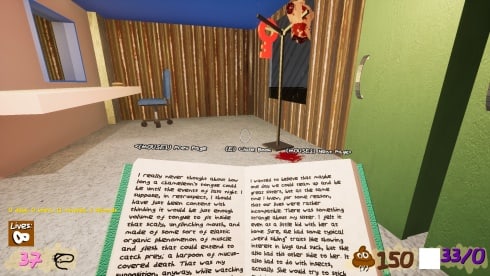 <(MOUSE1) Prev Page (E) Close Book (MOUSE2) Next Page>
I really never thought about how
long a chameleon's tongue could
be until the events of last night. I
suppose, in retrospect, I should
have just been content with
thinking it would be just enough
volume of tongue to fit inside
that scaly, unflinching mouth, and
made of some sort of elastic
organic phenomenon of muscle
and flesh that could extend to
catch prey; a harpoon of mucus-
covered death. That was my
supposition, anyway, while watching
I wanted to believe that maybe
one day we could team up and be
great sisters, but at the same
time I knew, for some reason,
that our lives were rather
incompatible. There was something
strange about my sister. I felt it
even as a little kid with her at
home. Sure, she had some typical
weird sibling traits like showing
interest in bugs and such, but she
also had this other side to her. It
also had to do with insects,
actually. She would try to stick
Lives:
37
150
33/0